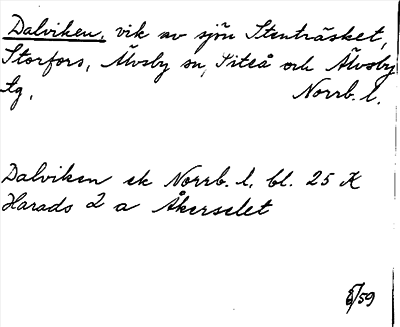 Dalviken, vik av sjön Stenträsket,
Storfors, Älvsby sn, Piteå och Älvsby
tg. Norrb. l.
Dalviken ek Norrb. l. bl. 25 K
Harads 2 a Åkerselet
/59